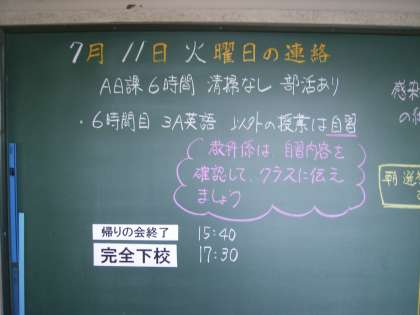 7月 11日 火 曜日の連絡
A日課6時間 清掃なし 部活あり
・6時間目 3A英語 以外の授業は自習
教科係は、自習内容を
確認して、クラスに伝え
ましょう
帰りの会終了 15:40
完全下校 17:30
感染